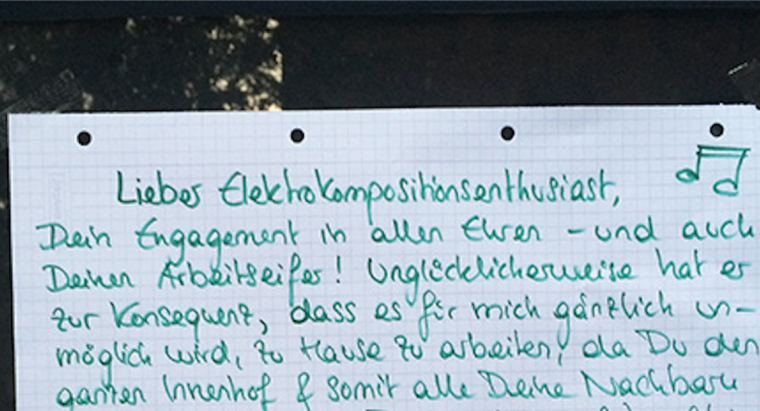 Lieber Elektrokompositionsenthusiast,
Dein Engagement in allen Ehren - und auch
Deinen Arbeitseifer! Unglücklicherweise hat er
zur Konsequenz, dass es für mich gänzlich un-
möglich wird, zu Hause zu arbeiten, da Du den
ganzen Innenhof & somit alle Deine Nachbarn